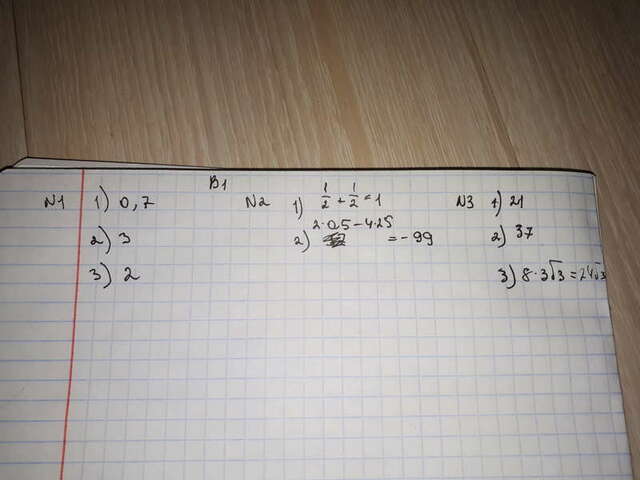 В1
N1 1) 0,7
2) 3
3) 2
N2 1) 1/2 + 1/2 = 1
2) 2·0,5 - 4·25 = -99
N3 1) 21
2) 37
3) 8·3√3 = 24√3